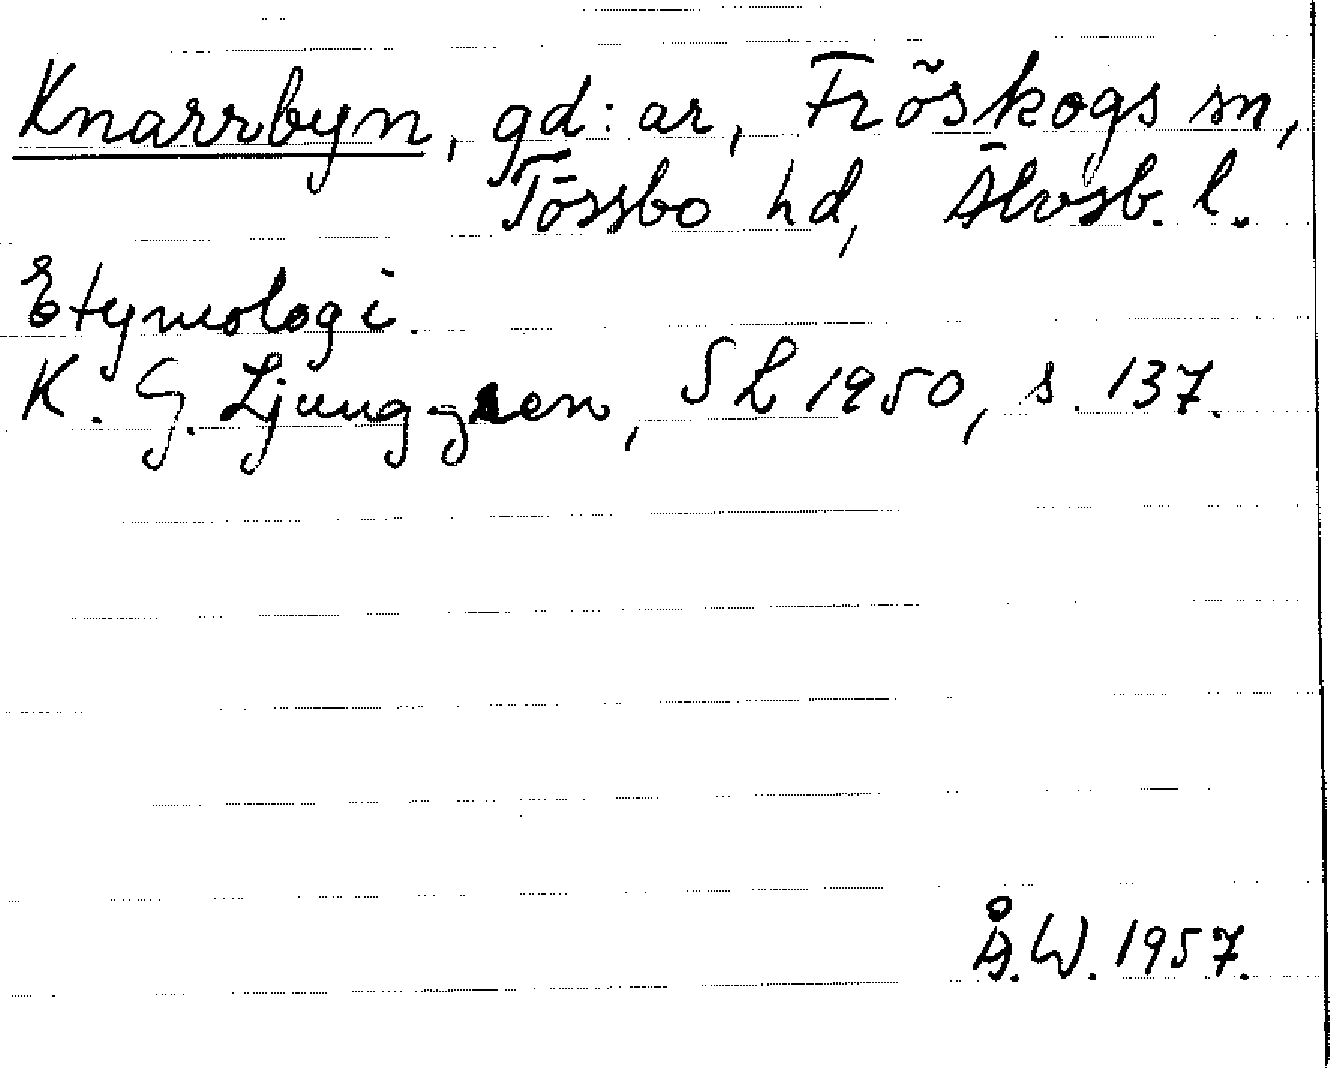 Knarrbyn, gd:ar, Fröskogs sn,
Tössbo hd, Älvsb. l.
Etymologi.
K. G. Ljunggren, SL 1950, s. 137.
Å.W. 1957.